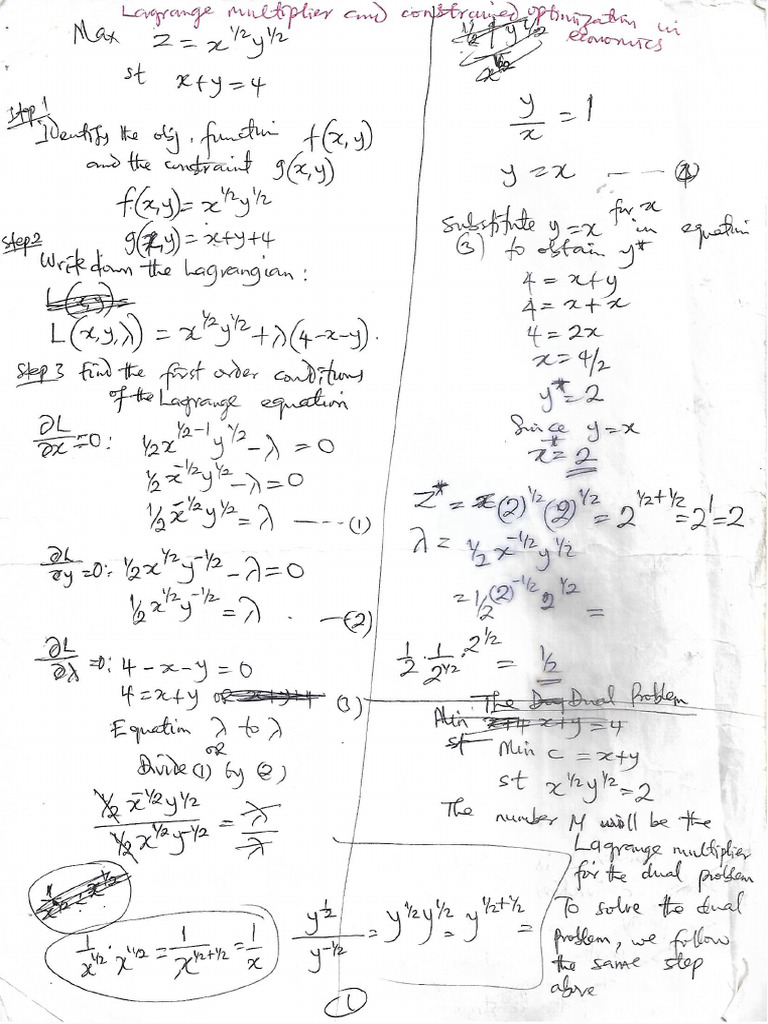 Lagrange multiplier and constrained optimization in economics
Max Z = x^{1/2} y^{1/2}
st x + y = 4
Step 1
Identify the obj. function f(x,y)
and the constraint g(x,y)
f(x,y) = x^{1/2} y^{1/2}
g(x,y) = x+y+4
Step 2
Write down the Lagrangian:
L(x,y,λ) = x^{1/2} y^{1/2} + λ(4-x-y).
Step 3 Find the first order conditions
of the Lagrange equation
∂L/∂x = 0: 1/2 x^{1/2-1} y^{1/2} - λ = 0
1/2 x^{-1/2} y^{1/2} - λ = 0
1/2 x^{-1/2} y^{1/2} = λ ---- (1)
∂L/∂y = 0: 1/2 x^{1/2} y^{-1/2} - λ = 0
1/2 x^{1/2} y^{-1/2} = λ . —(2)
∂L/∂λ = 0: 4 - x - y = 0
4 = x+y (3)
Equation λ to λ
or
Divide (1) by (2)
(1/2 x^{-1/2} y^{1/2}) / (1/2 x^{1/2} y^{-1/2}) = λ/λ
1/x^{1/2} · x^{1/2} = 1/x^{1/2+1/2} = 1/x
y^{1/2} / y^{-1/2} = y^{1/2} y^{1/2} = y^{1/2+1/2} =
y/x = 1
y = x ----
Substitute y = x for x in equation
(3) to obtain y*
4 = x+y
4 = x+x
4 = 2x
x = 4/2
y* = 2
Since y = x
x* = 2
Z* = (2)^{1/2} (2)^{1/2} = 2^{1/2+1/2} = 2^1 = 2
λ = 1/2 x^{-1/2} y^{1/2}
= 1/2 (2)^{-1/2} 2^{1/2} =
1/2 · 1/2^{1/2} · 2^{1/2} = 1/2
The Dual Problem
Min x+y = 4
st Min c = x+y
st x^{1/2} y^{1/2} = 2
The number M will be the
Lagrange multiplier
for the dual problem
To solve the dual
problem, we follow
the same step
above
1